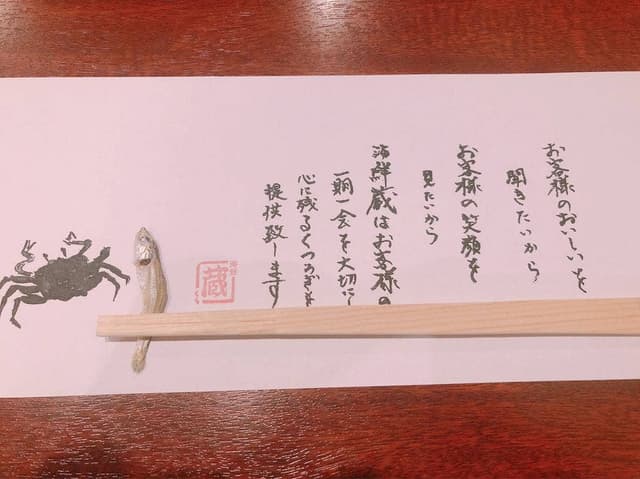 お客様のおいしいを
聞きたいから
お客様の笑顔を
見たいから
海鮮蔵はお客様の
一期一会を大切に
心に残るくつろぎを
提供致します
蔵